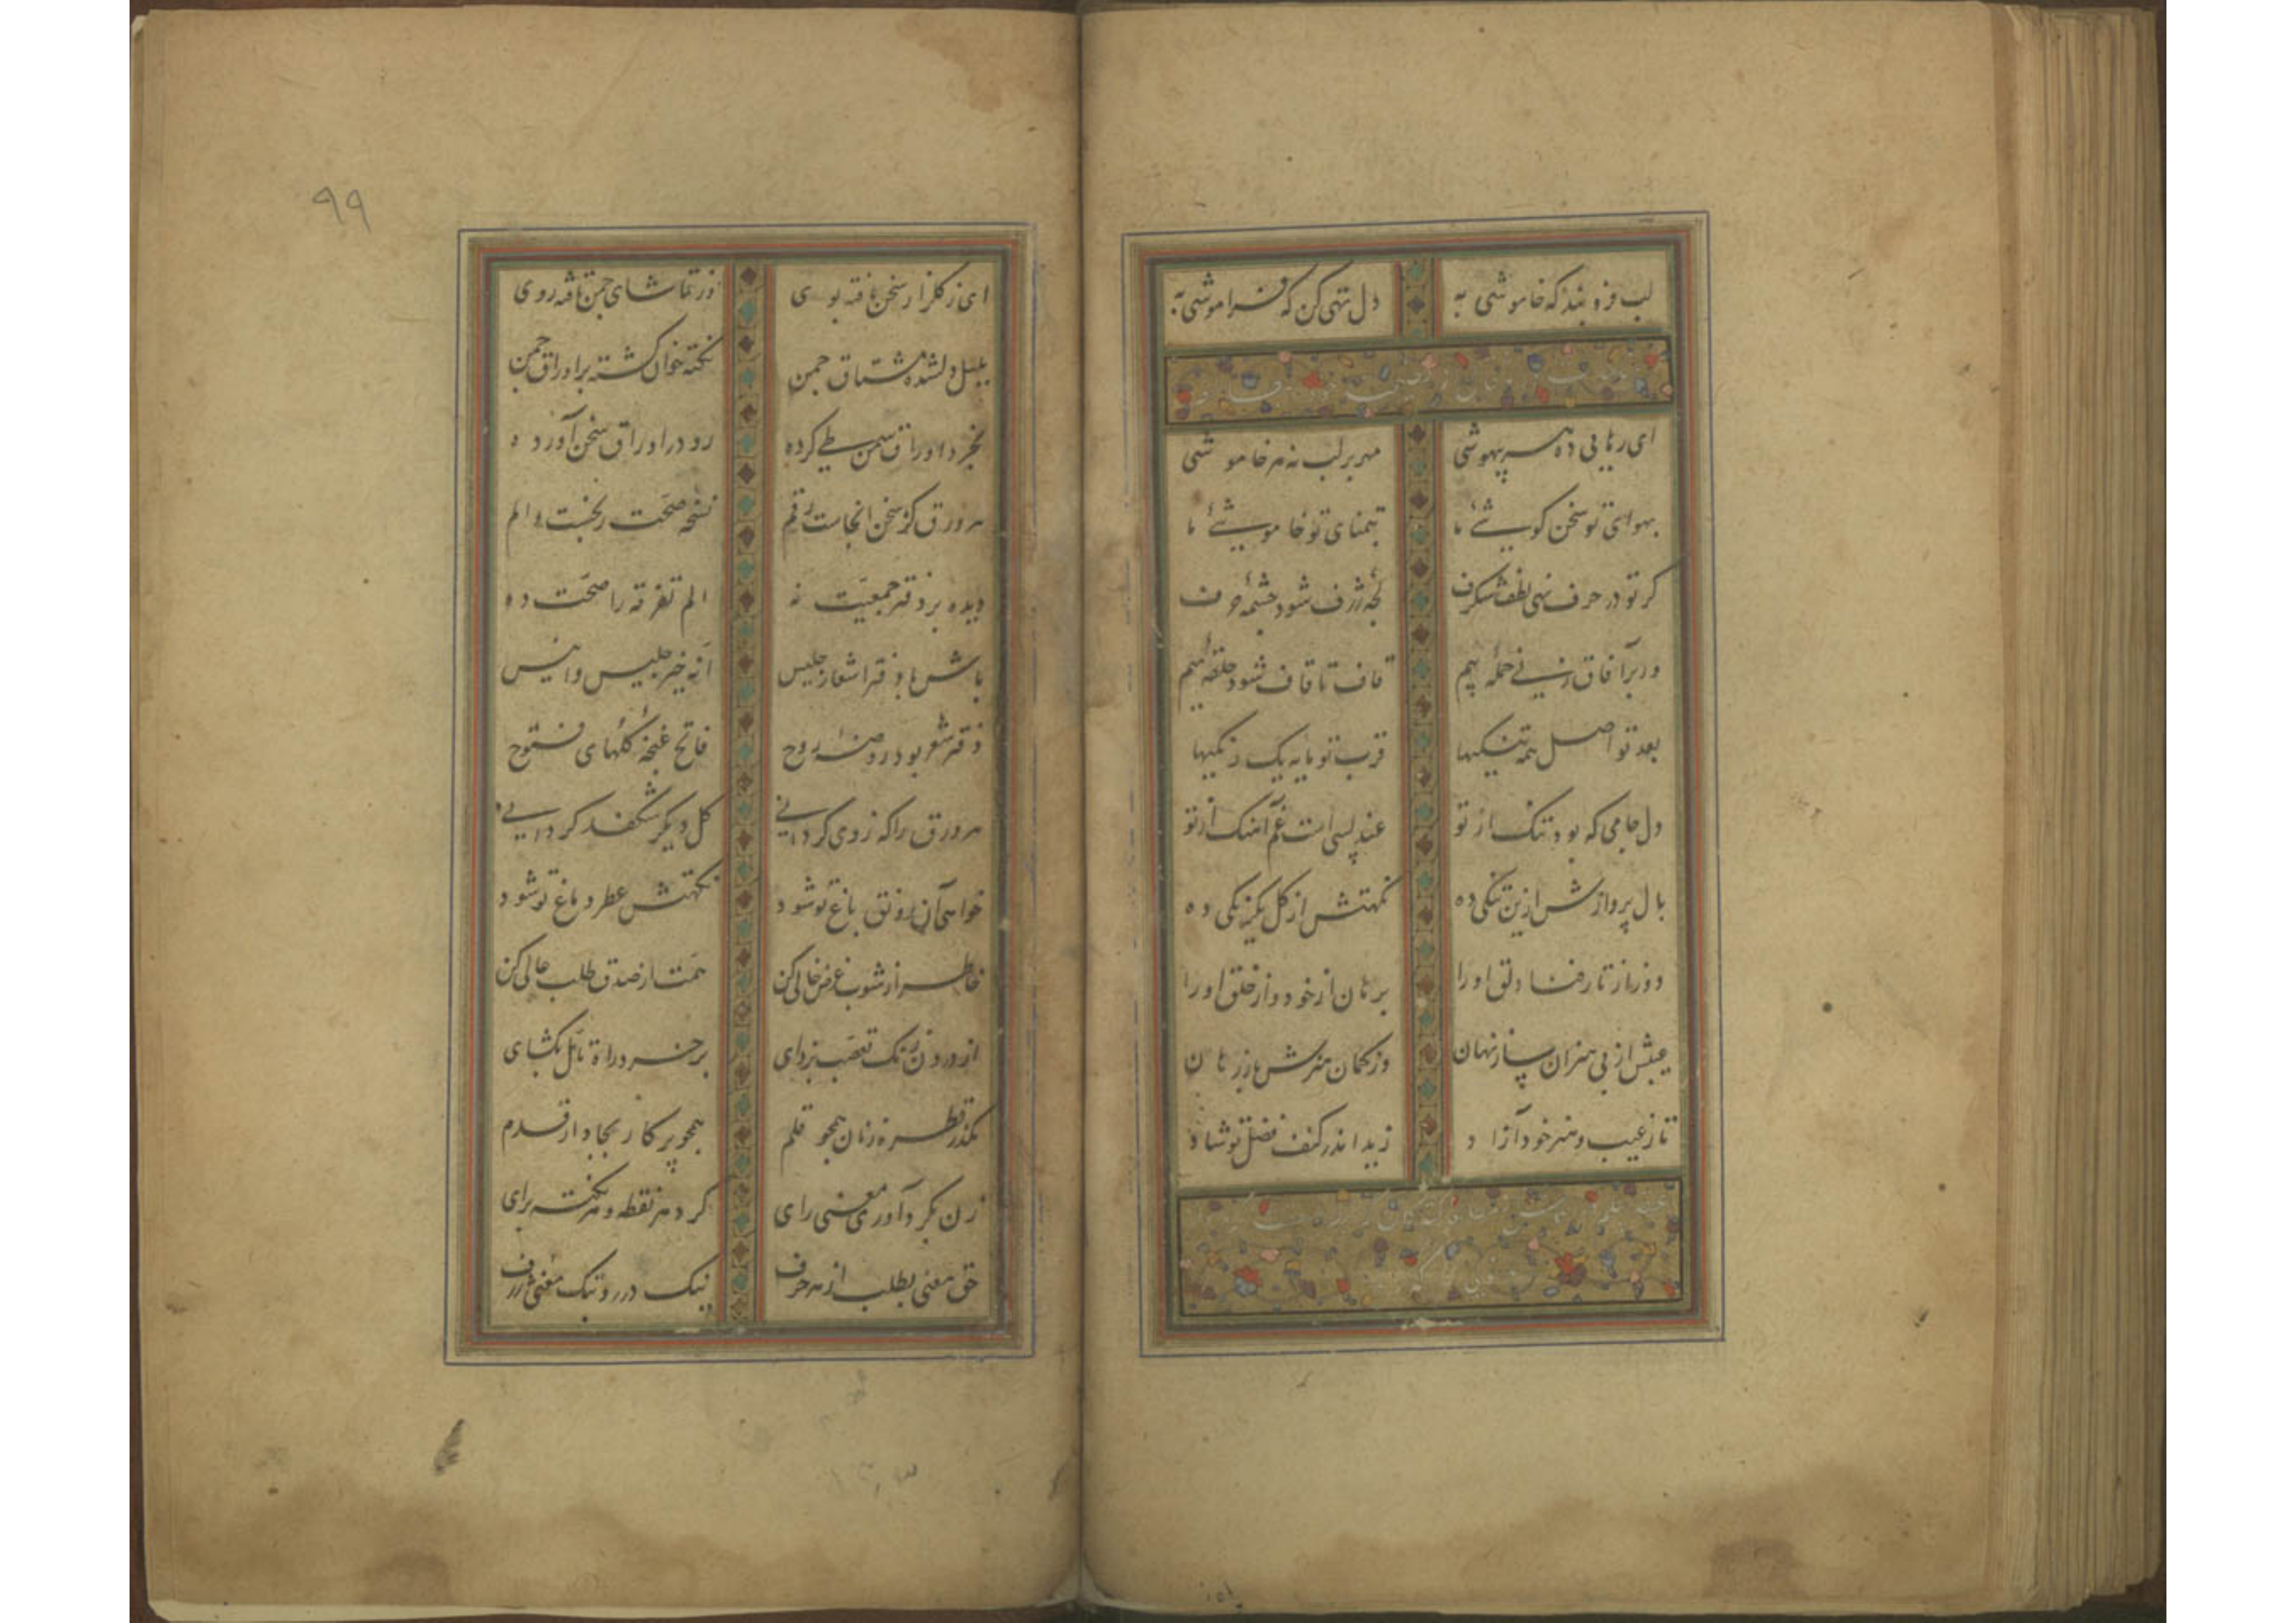 لب فرو بند که خاموشی به دل تهی کن که فراموشی به
ای رهایی ده هر بیهوشی مهر بر لب نه هر خاموشی
بهوای تو سخن کوشیٔ ما بتمنای تو خاموشیٔ ما
کر تو در حرف نهی لطف شکرف لجهٔ ژرف شود چشمهٔ حرف
ور بر آفاق زنی حملهٔ بیم قاف تا قاف شود حلقهٔ میم
بعد تو اصل همه تنکیها قرب تو مایه یک رنکیها
دل جامی که بود تنک از تو عندلیبی است غم آهنک از تو
بال پروازش ازین تنکی ده نکهتش از کل یکرنکی ده
دور از تار فنا دلق او را برهان از خود و از خلق او را
عیبش از بی هنران ساز نهان وز کمان هنرش باز رهان
تا ز عیب و هنر خود آزاد زید اندر کنف فضل تو شاد
۹۹
ای ز کلزار سخن یافته بوی وز تماشای چمن تافته روی
بلبل دلشده مشتاق چمن نکته خوان کشته بر اوراق چمن
بخرد اوراق سمن طی کرده رو در اوراق سخن آورده
هر ورق کز سخن انجاست رقم نسخه صحت رنجست و الم
دیده بر دفتر جمعیت نه الم تفرقه را صحت ده
باش با دفتر اشعار جلیس انه خیر جلیس و انیس
دفتر شعر بود روضه روح فاتح غنچهٔ کلهای فتوح
هر ورق را که ز وی کردانی کل دیکر شکفد کردانی
خواهی آن رونق باغ تو شود نکهتش عطر دماغ تو شود
خاطر از شوب غرض خالی کن همت از صدق طلب عالی کن
از درون زنک تعصب بزدای بر خرد راه تامل بکشای
مکذر قطره زنان همچو قلم همچو پرکار بجا دار قدم
زن بکرد آوری معنی رای کرد هر نقطه و هر نکته برای
حق معنی بطلب از هر حرف نیک در رو بتک معنی ژرف